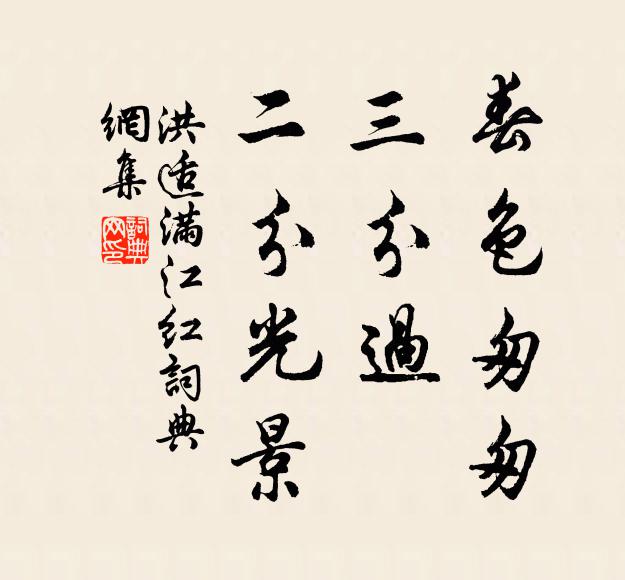 春色匆匆
三分過
二分光景
洪适滿江紅詞典
網集
詞典
网印